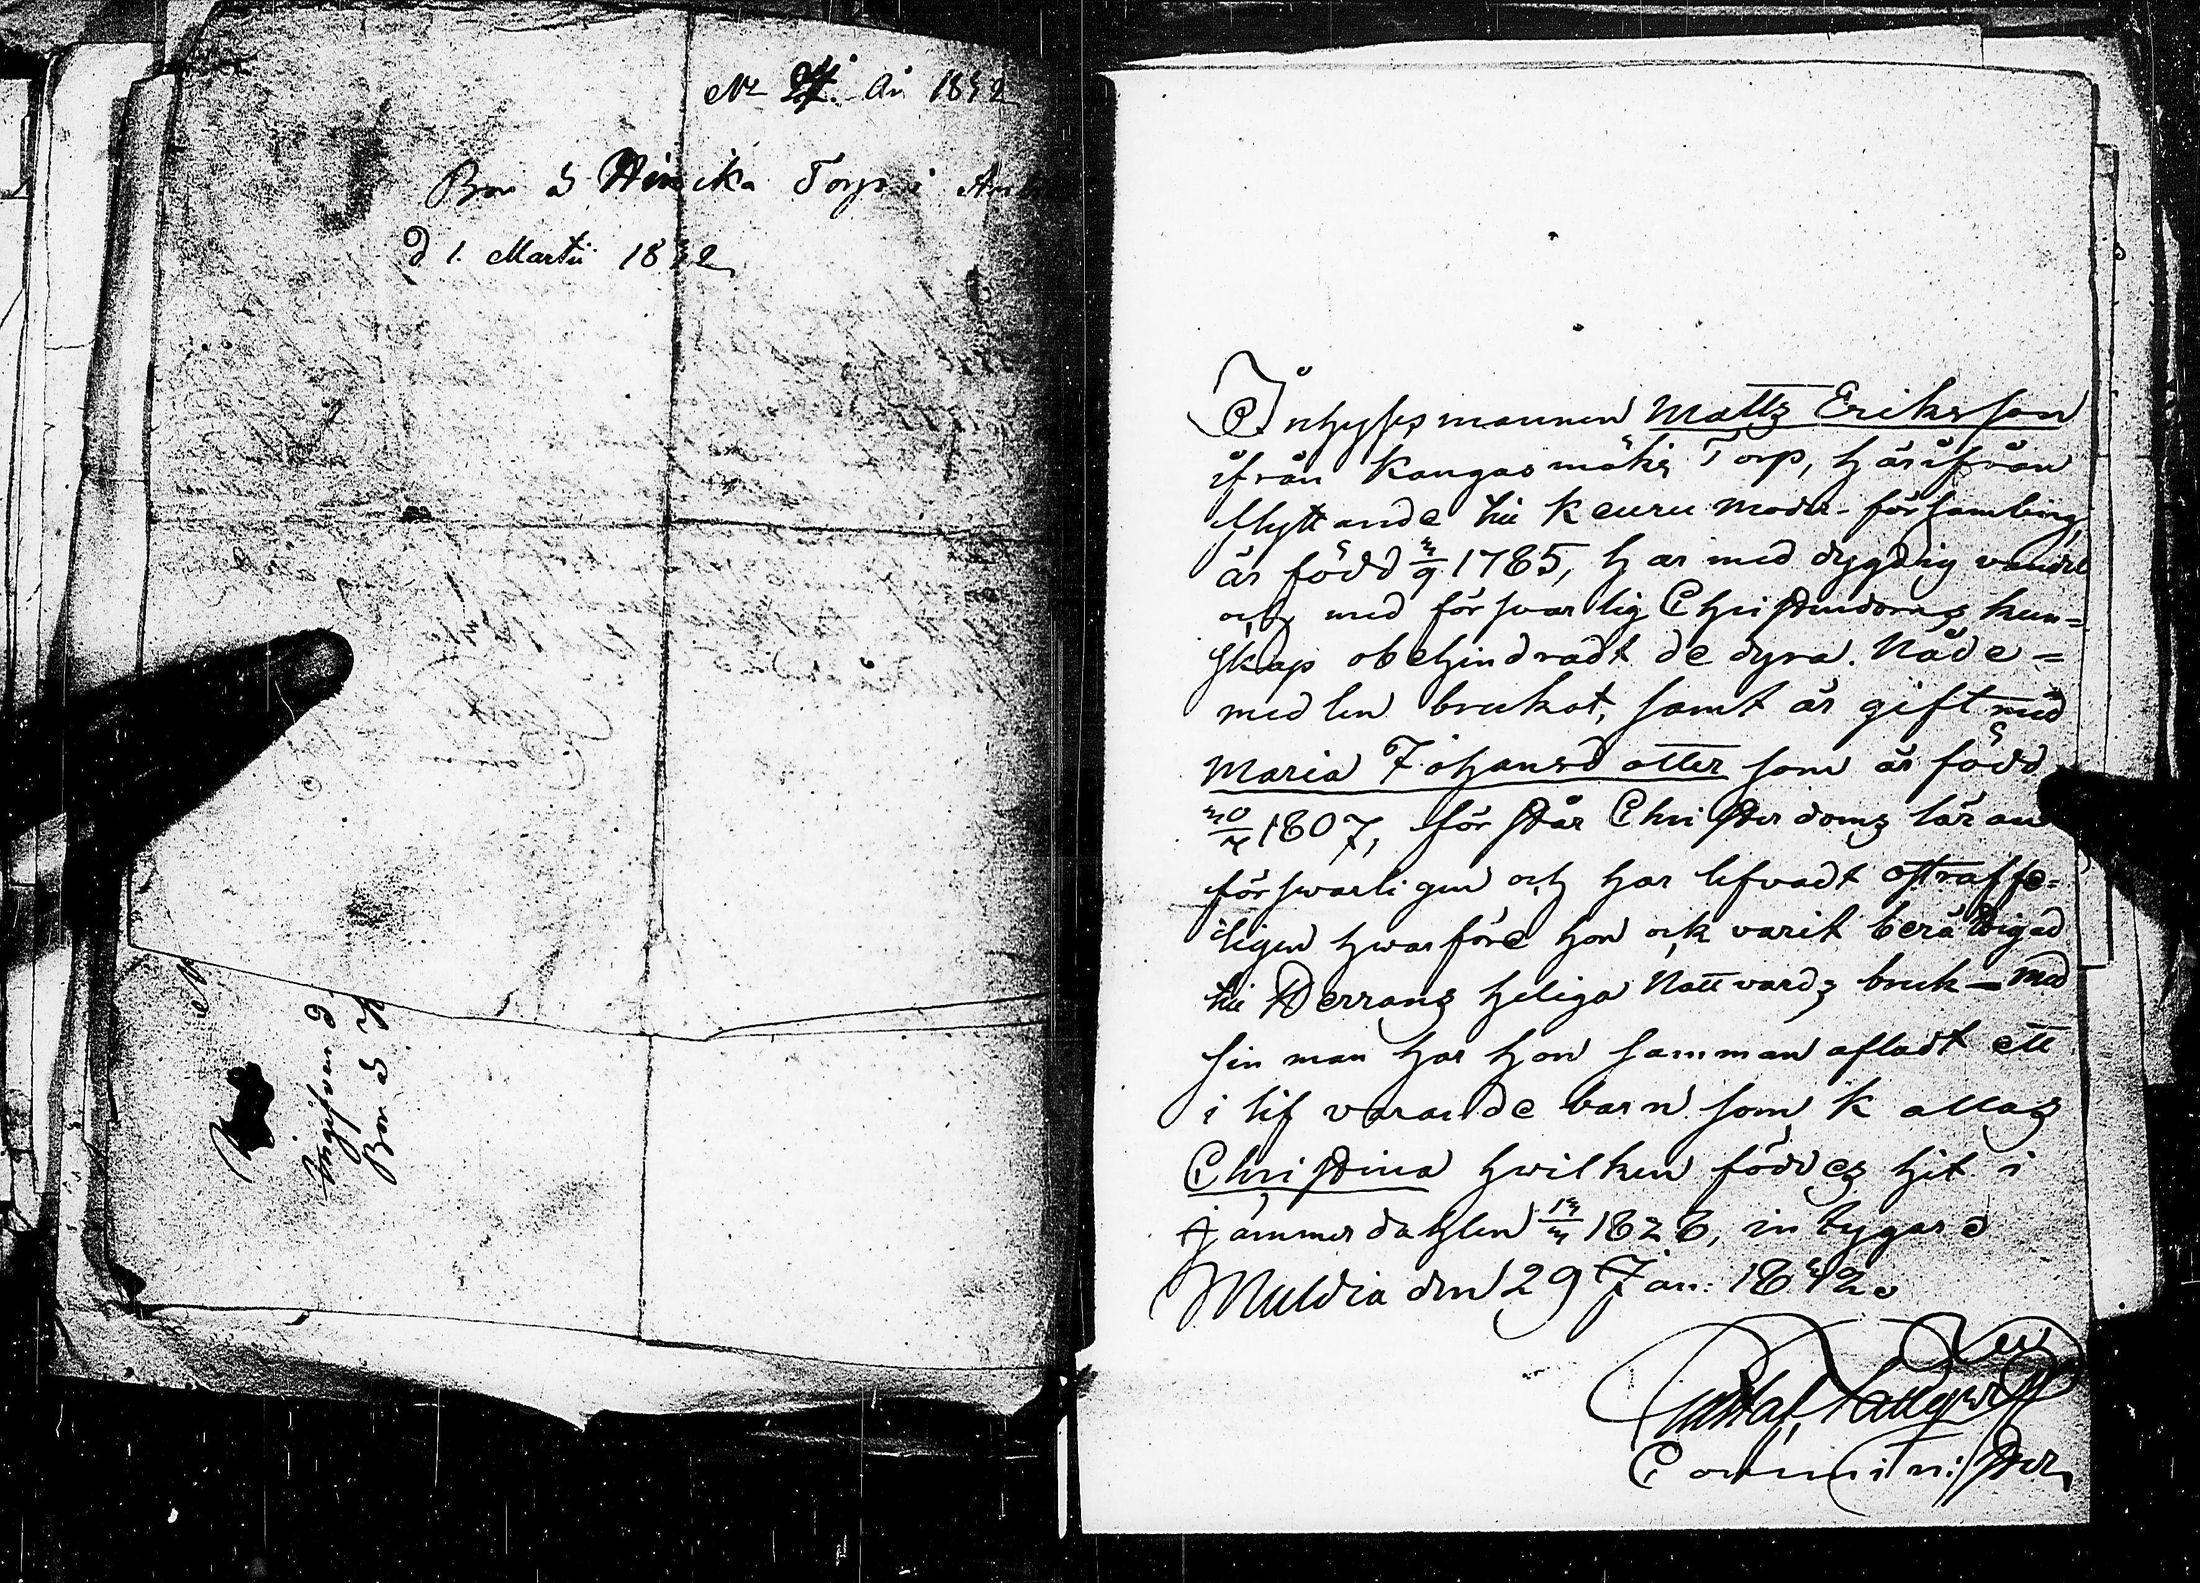 No 24. År 1832
Bor å Hinsika Torp i
d 1. Martii 1832
Ingifven d
Bor å H
Inhyses mannen Matts Eriksson
ifrån Kangasmäki Torp, härifrån
flyttande till Keuru Moder-församling,
är född 3/9 1785, har med dygdig vandel
och med försvarlig Christendoms kun=
skap obehindradt de dyra Nåde=
medlen brukat, samt är gift med
Maria Johansdotter som är född
30/7 1807, förstår Christerdoms läran
försvarligen och har lefvadt ostraffe=
ligen hwarföre hon ock varit berättigad
till Herrans heliga Nattvards bruk – Med
sin man har hon samman afladt ett
i lif varande barn som kallas
Christina hwilken föddes hit i
jämmerdahlen 13/3 1828, intygar
Muldia den 29 Jan: 1832.
Gustaf
Comminister